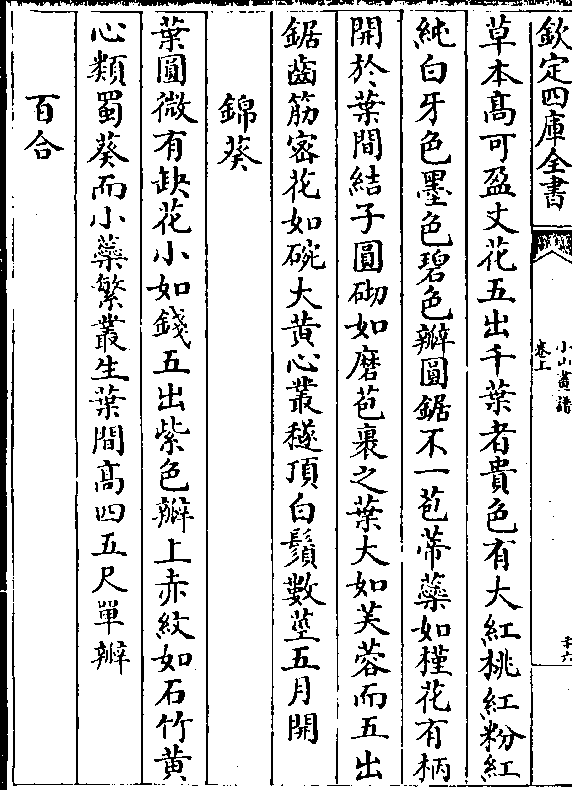 欽定四庫全書
小山畫譜
卷上
草本髙可盈丈花五出千葉者貴色有大紅桃紅粉紅
純白牙色墨色碧色瓣圓鋸不一苞蒂蘂如槿花有柄
開於葉間結子圓砌如磨苞裹之葉大如芙蓉而五出
鋸齒筋宻花如碗大黄心叢穟頂白鬚數莖五月開
錦葵
葉圓微有缺花小如錢五出紫色瓣上赤紋如石竹黄
心類蜀葵而小蘂繁叢生葉間髙四五尺單瓣
百合